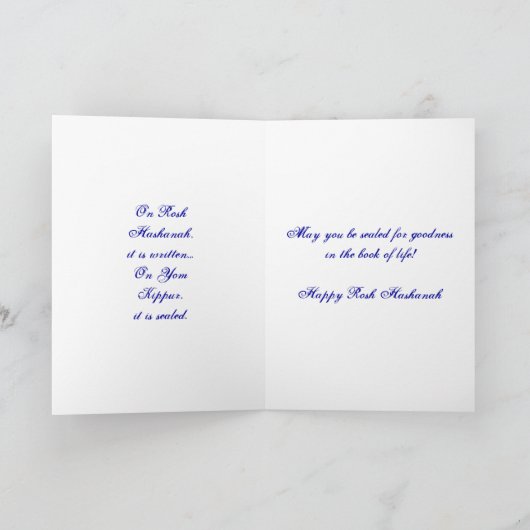 On Rosh
Hashanah,
it is written...
On Yom
Kippur,
it is sealed.
May you be sealed for goodness
in the book of life!
Happy Rosh Hashanah